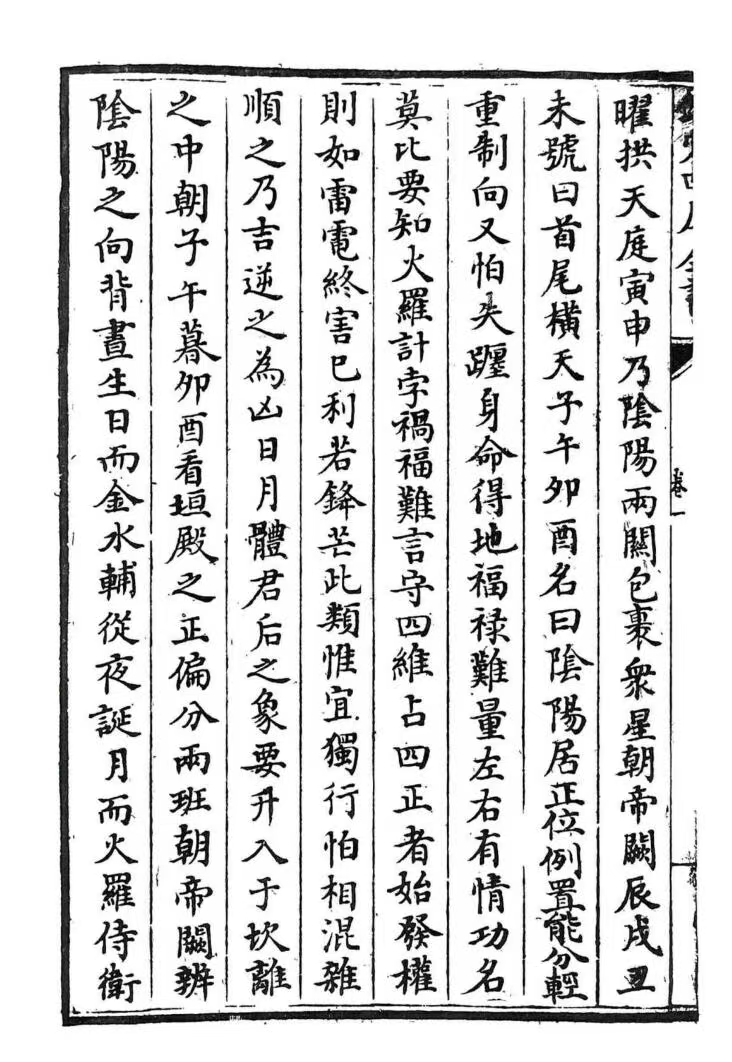 欽定四庫全書
卷一
曜拱天庭寅申乃陰陽兩關包裹衆星朝帝闕辰戌丑
未號曰首尾橫天子午卯酉名曰陰陽居正位例置能分輕
重制向又怕失躔身命得地福禄難量左右有情功名
莫比要知火羅計孛禍福難言守四維占四正者始發權
則如雷電終害已利若鋒芒此類惟宜獨行怕相混雜
順之乃吉逆之為凶日月體君后之象要升入于坎離
之中朝子午暮卯酉看垣殿之正偏分兩班朝帝闕辨
陰陽之向背晝生日而金水輔從夜誕月而火羅侍衛